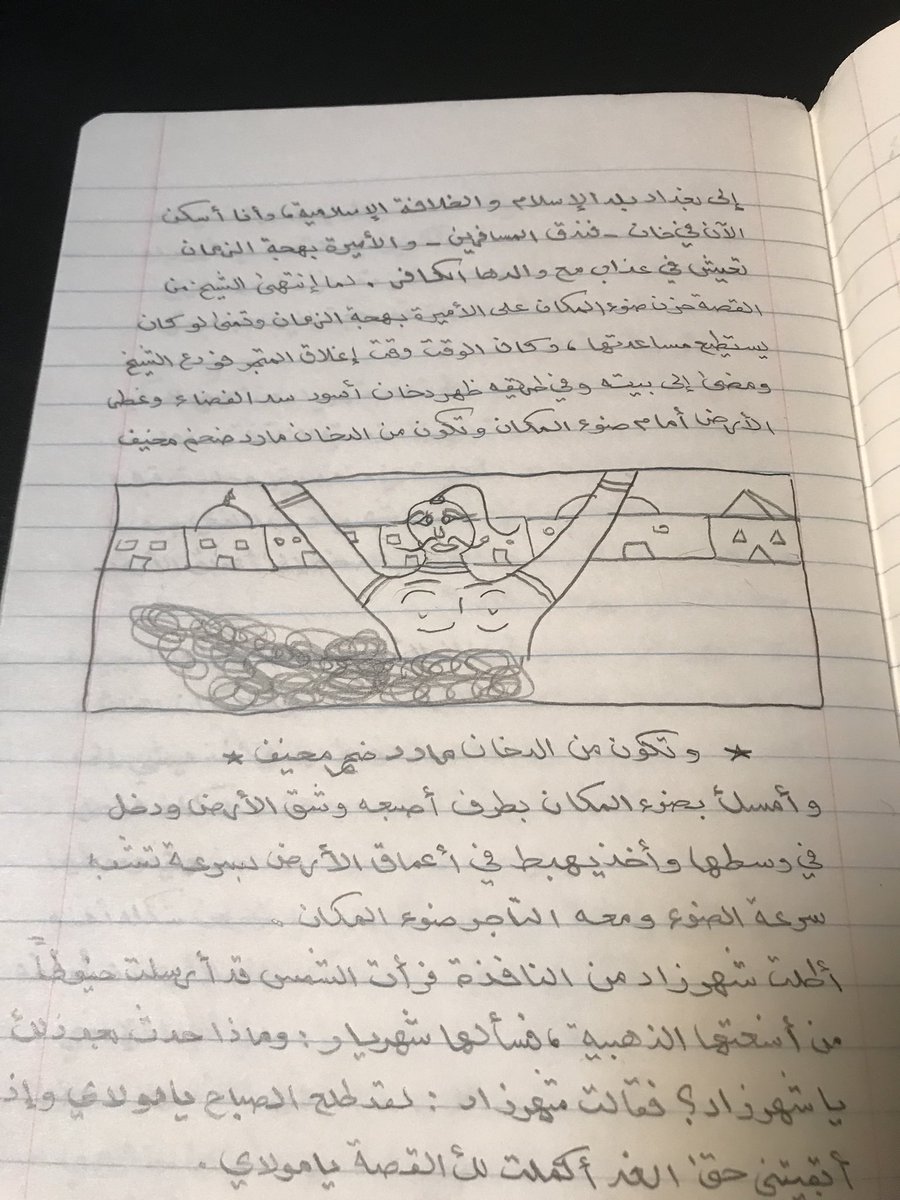 إلى بغداد بلد الإسلام والخلافة الإسلامية، وأنا أسكن
الآن في خان - فندق المسافرين - والأميرة بهجة الزمان
تعيش في عذاب مع والدها الكافر. لما إنتهى الشيخ من
القصة حزن ضوء المكان على الأميرة بهجة الزمان وتمنى لو كان
يستطيع مساعدتها، وكان الوقت وقت إغلاق المتجر فودع الشيخ
ومضى إلى بيته وفي طريقه ظهر دخان أسود سد الفضاء وغطى
الأرض أمام ضوء المكان وتكون من الدخان مارد ضخم مخيف
* وتكون من الدخان مارد ضخم مخيف *
وأمسك بضوء المكان بطرف أصبعه وشق الأرض ودخل
في وسطها وأخذ يهبط في أعماق الأرض بسرعة تشبه
سرعة الضوء ومعه التاجر ضوء المكان.
أطلت شهرزاد من النافذة فرأت الشمس قد أرسلت خيوطاً
من أشعتها الذهبية، فسألها شهريار: وماذا حدث بعد ذلك
يا شهرزاد؟ فقالت شهرزاد: لقد طلع الصباح يا مولاي وإذ
أبقيتني حتى الغد أكملت لك القصة يا مولاي.